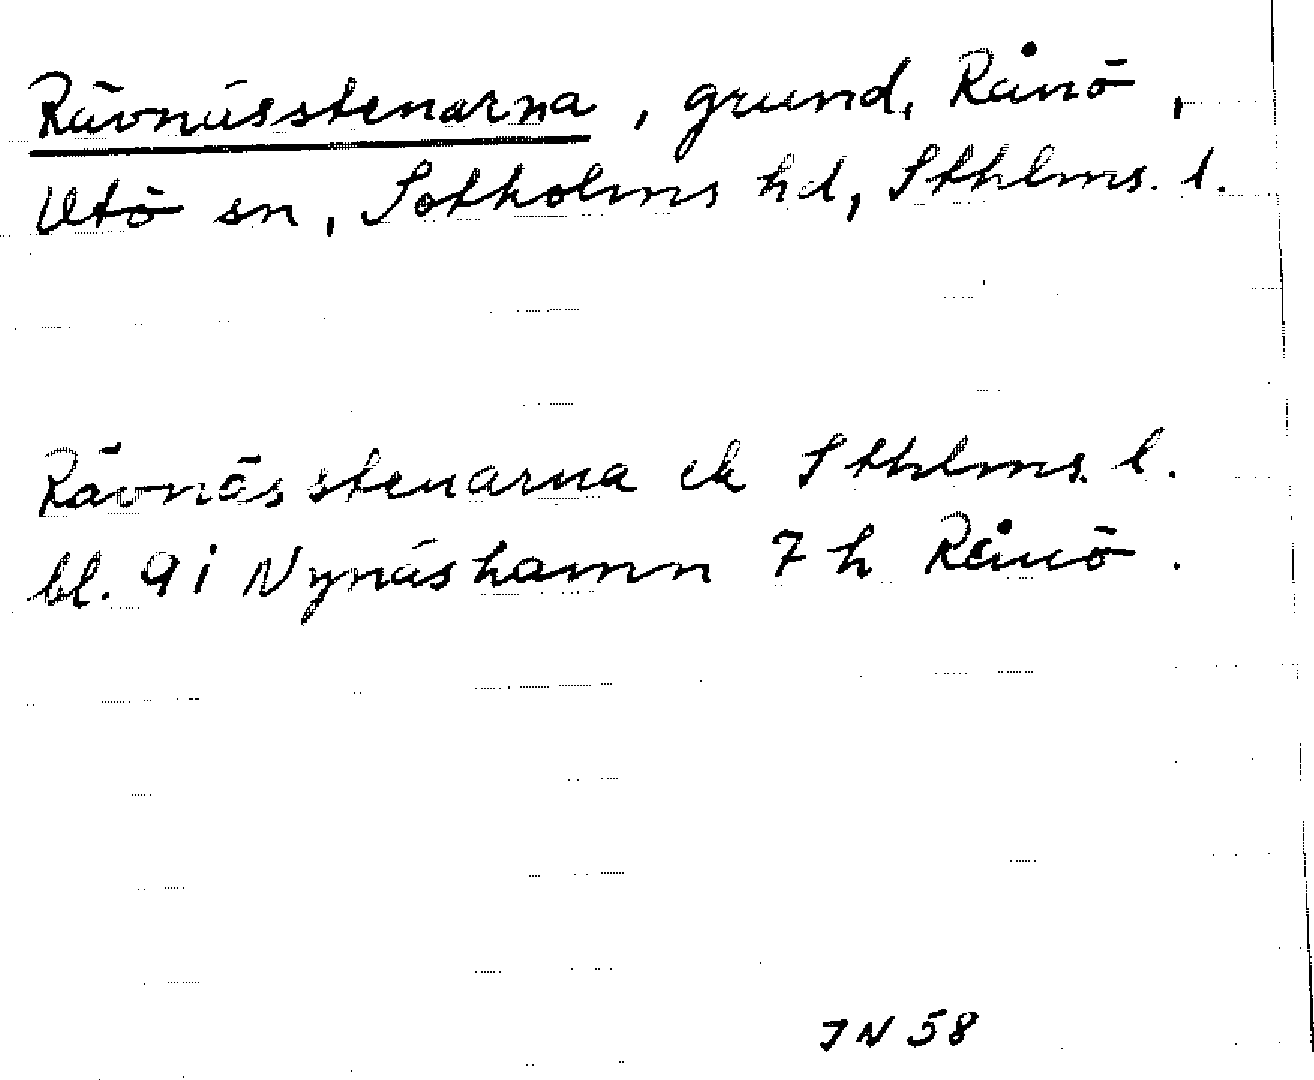 Rävnässtenarna, grund, Rånö,
Utö sn, Sotholms hd, Sthlms. l.
Rävnässtenarna ek Sthlms. l.
bl. 9i Nynäshamn 7 h Rånö.
JN 58